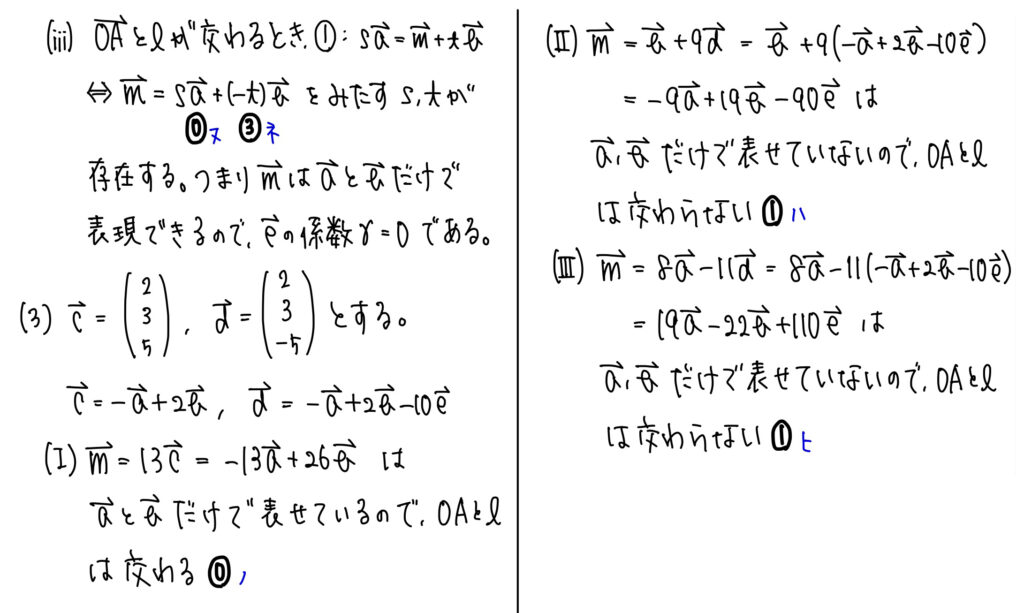 (iii) OA→とlが交わるとき, ①: sa→ = m→ + tb→
⇔ m→ = sa→ + (-t)b→ をみたす s, t が
⓪ヌ ③ネ
存在する。つまり m→ は a→ と b→ だけで
表現できるので, e→ の係数 γ = 0 である。
(3) c→ = (2 3 5), d→ = (2 3 -5) とする。
c→ = -a→ + 2b→, d→ = -a→ + 2b→ - 10e→
(I) m→ = 13c→ = -13a→ + 26b→ は
a→ と b→ だけで表せているので, OAとl
は交わる ⓪ノ
(II) m→ = b→ + 9d→ = b→ + 9(-a→ + 2b→ - 10e→)
= -9a→ + 19b→ - 90e→ は
a→, b→ だけで表せていないので, OAとl
は交わらない ①ハ
(III) m→ = 8a→ - 11d→ = 8a→ - 11(-a→ + 2b→ - 10e→)
= 19a→ - 22b→ + 110e→ は
a→, b→ だけで表せていないので, OAとl
は交わらない ①ヒ